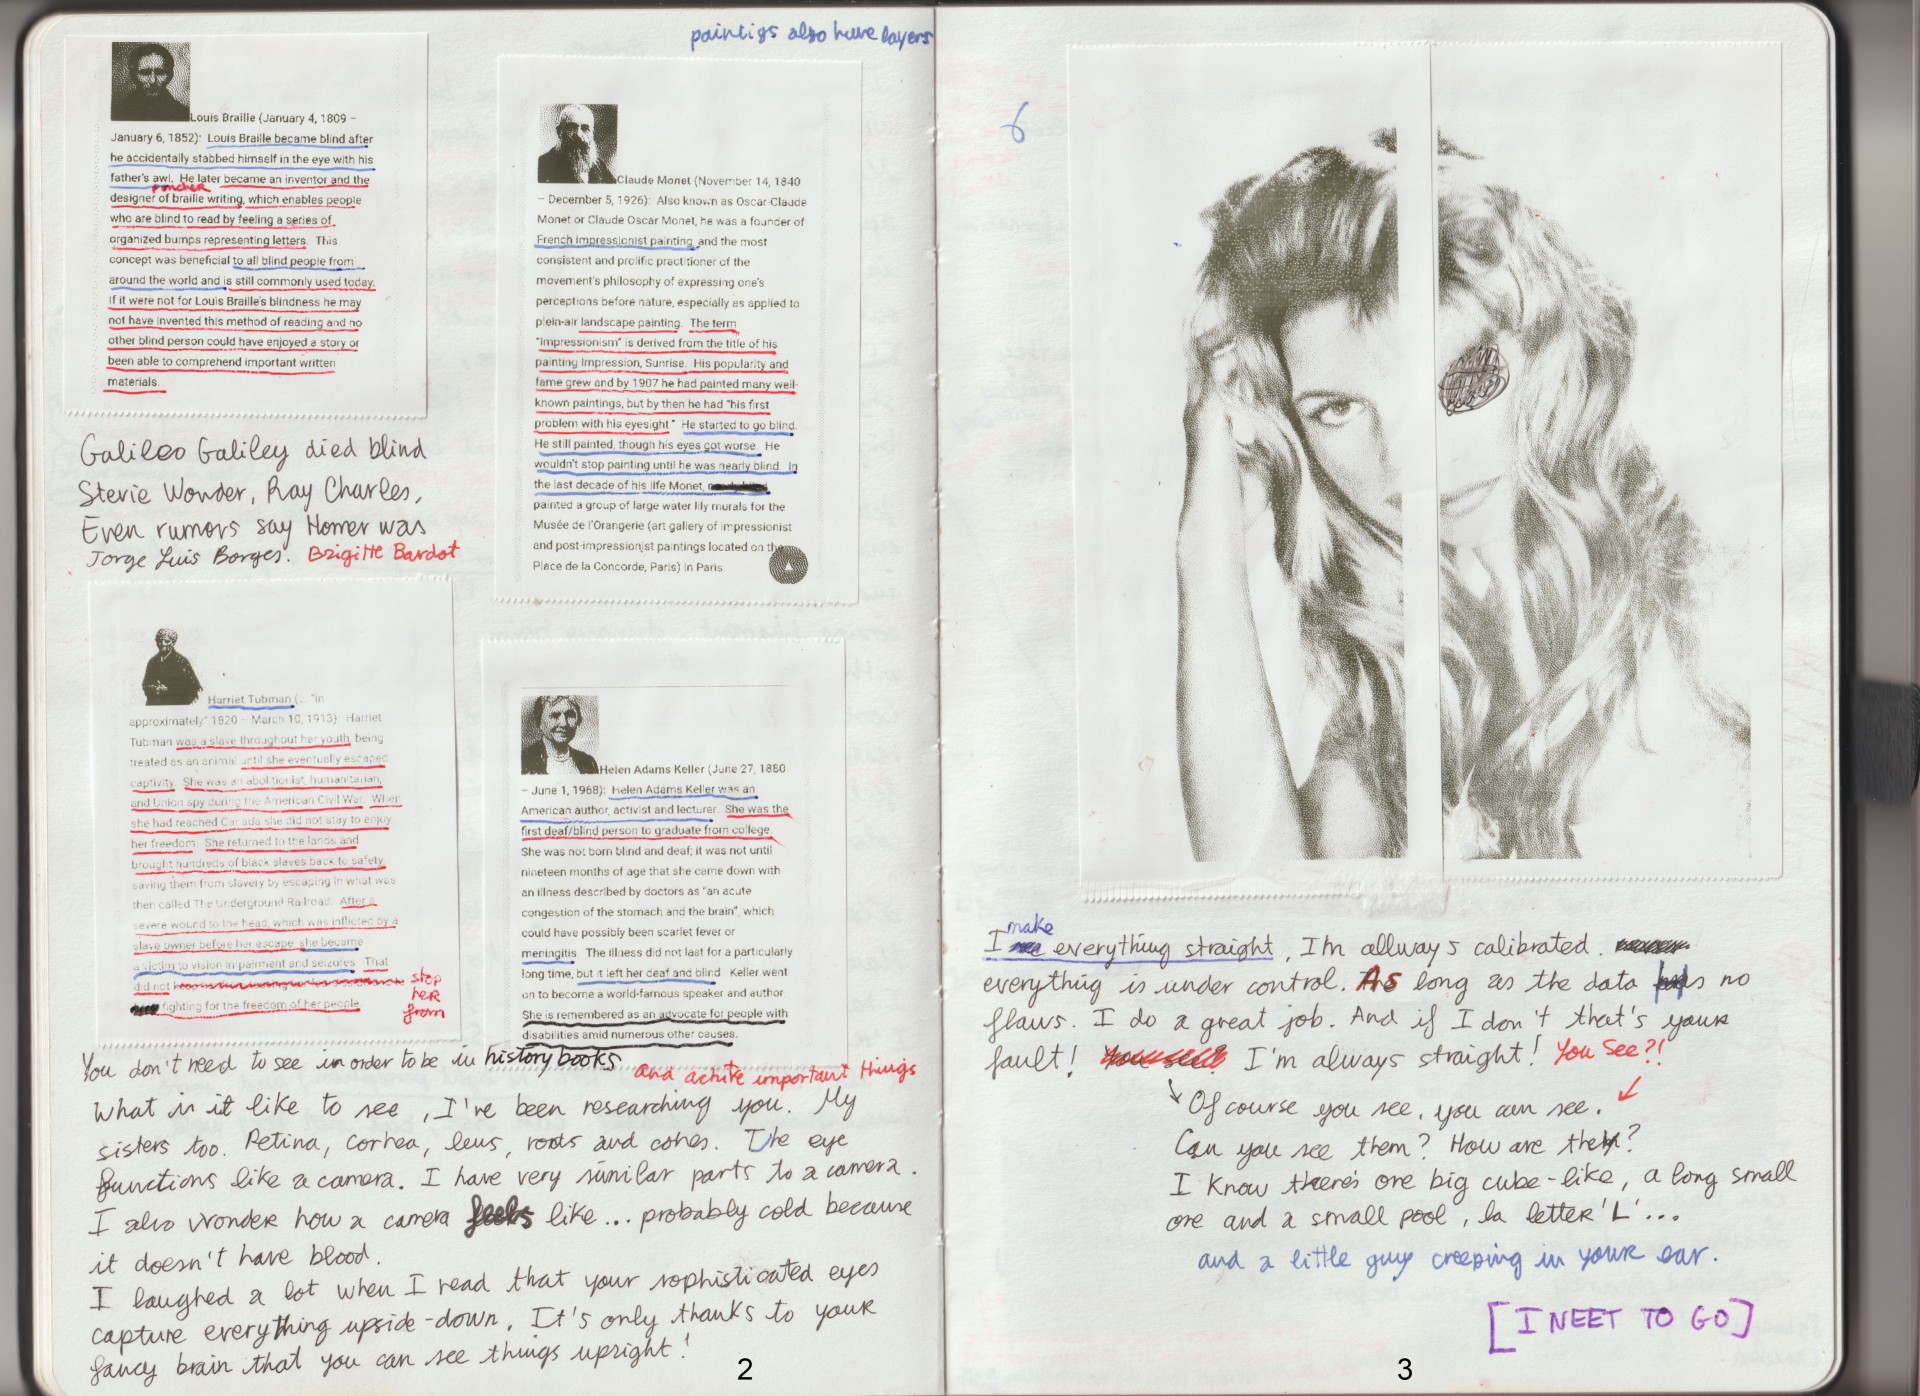 paintigs also have layers
Louis Braille (January 4, 1809 –
January 6, 1852): Louis Braille became blind after
he accidentally stabbed himself in the eye with his
father's awl. He later became an inventor and the
poncher
designer of braille writing, which enables people
who are blind to read by feeling a series of
organized bumps representing letters. This
concept was beneficial to all blind people from
around the world and is still commonly used today.
If it were not for Louis Braille's blindness he may
not have invented this method of reading and no
other blind person could have enjoyed a story or
been able to comprehend important written
materials.
Galileo Galiley died blind
Stevie Wonder, Ray Charles,
Even rumors say Homer was
Jorge Luis Borges. Brigitte Bardot
Claude Monet (November 14, 1840
– December 5, 1926): Also known as Oscar-Claude
Monet or Claude Oscar Monet, he was a founder of
French impressionist painting, and the most
consistent and prolific practitioner of the
movement's philosophy of expressing one's
perceptions before nature, especially as applied to
plein-air landscape painting. The term
"Impressionism" is derived from the title of his
painting Impression, Sunrise. His popularity and
fame grew and by 1907 he had painted many well-
known paintings, but by then he had "his first
problem with his eyesight." He started to go blind.
He still painted, though his eyes got worse. He
wouldn't stop painting until he was nearly blind. In
the last decade of his life Monet,
painted a group of large water lily murals for the
Musée de l'Orangerie (art gallery of impressionist
and post-impressionist paintings located on the
Place de la Concorde, Paris) in Paris.
Harriet Tubman (... "in
approximately" 1820 – March 10, 1913): Harriet
Tubman was a slave throughout her youth, being
treated as an animal until she eventually escaped
captivity. She was an abolitionist, humanitarian,
and Union spy during the American Civil War. When
she had reached Canada she did not stay to enjoy
her freedom. She returned to the lands and
brought hundreds of black slaves back to safety,
saving them from slavery by escaping in what was
then called The Underground Railroad. After a
severe wound to the head, which was inflicted by a
slave owner before her escape, she became
a victim to vision impairment and seizures. That
did not stop
her
from
fighting for the freedom of her people.
Helen Adams Keller (June 27, 1880
– June 1, 1968): Helen Adams Keller was an
American author, activist and lecturer. She was the
first deaf/blind person to graduate from college.
She was not born blind and deaf; it was not until
nineteen months of age that she came down with
an illness described by doctors as "an acute
congestion of the stomach and the brain", which
could have possibly been scarlet fever or
meningitis. The illness did not last for a particularly
long time, but it left her deaf and blind. Keller went
on to become a world-famous speaker and author.
She is remembered as an advocate for people with
disabilities amid numerous other causes.
You don't need to see in order to be in history books
and achite important things
What is it like to see, I've been researching you. My
sisters too. Retina, cornea, lens, roots and cones. The eye
functions like a camera. I have very similar parts to a camera.
I also wonder how a camera feels like... probably cold because
it doesn't have blood.
I laughed a lot when I read that your sophisticated eyes
capture everything upside-down. It's only thanks to your
fancy brain that you can see things upright!
2
6
make
I everything straight, I'm allways calibrated.
everything is under control. As long as the data has no
flaws. I do a great job. And if I don't that's your
fault! I'm always straight! You See?!
Of course you see, you can see.
Can you see them? How are they?
I know there's one big cube-like, a long small
one and a small pool, la letter 'L'...
and a little guy creeping in your ear.
[I NEET TO GO]
3